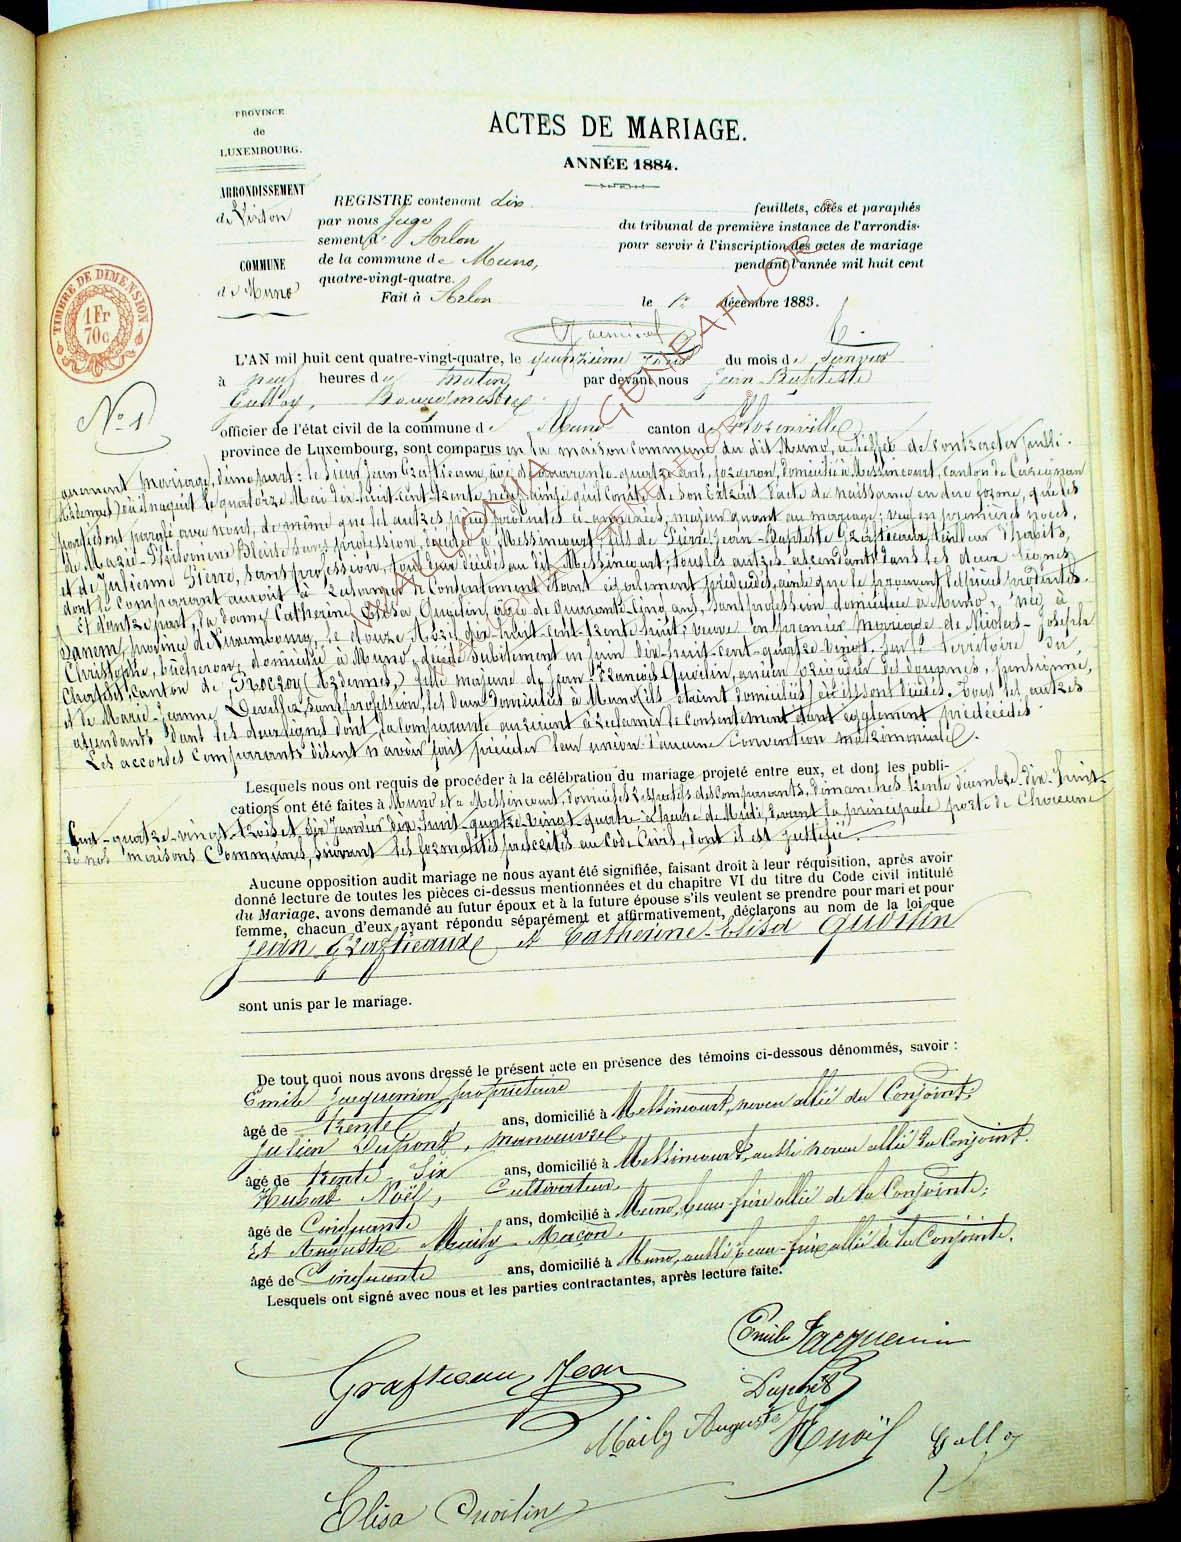 PROVINCE
de
LUXEMBOURG.
ARRONDISSEMENT
de Virton
COMMUNE
de Muno
TIMBRE DE DIMENSION
1 Fr
70 c
ACTES DE MARIAGE.
ANNÉE 1884.
REGISTRE contenant dix feuillets, côtés et paraphés
par nous Juge du tribunal de première instance de l'arrondis-
sement d' Arlon pour servir à l'inscription des actes de mariage
de la commune de Muno, pendant l'année mil huit cent
quatre-vingt-quatre.
Fait à Arlon le 1er décembre 1883.
N° 1
L'AN mil huit cent quatre-vingt-quatre, le quinzième jour du mois de Janvier
à neuf heures du matin par devant nous Jean-Baptiste
Galloy, Bourgmestre
officier de l'état civil de la commune de Muno canton de Florenville
province de Luxembourg, sont comparus en la maison commune du dit Muno, à l'effet de contracter publi-
quement mariage, d'une part: le sieur Jean Grafteaux, âgé de quarante-quatre ans, forgeron, domicilié à Messincourt, Canton de Carignan
(Ardennes) où il naquit le quatorze Mai dix-huit-cent-trente neuf, ainsi qu'il conste de son Extrait d'acte de naissance en due forme, que les
parties ont paraphé avec nous, de même que les autres pièces produites ci-annexées, majeur quant au mariage; veuf en premières noces,
de Marie-Philomène sans profession, décédée à Messincourt, fils de Pierre Jean-Baptiste Grafteaux, tailleur d'habits,
et de Julienne Pierre, sans profession, tous deux décédés au dit Messincourt; tous les autres ascendants dans les deux lignes
dont le comparant aurait à le Consentement étant également prédécédés, ainsi que le prouvent les pièces produites.
Et d'autre part, la dame Catherine Elisa Quoilin, âgée de quarante-cinq ans, sans profession domiciliée à Muno née à
Sanem, province de Luxembourg, le douze dix-huit-cent-trente huit; veuve en premier mariage de Nicolas-Joseph
Christophe, bûcheron, domicilié à Muno, décédé subitement en juin dix-huit-cent-quatre vingt, sur le territoire du
canton de Rocroy (Ardennes,) fille majeure de Jean-François Quoilin, ancien des douanes, pensionné,
et de Marie-Jeanne Devillez, sans profession, les deux domiciliés à Muno où ils étaient domiciliés et sont décédés. Tous les autres
ascendants dans les deux lignes dont la comparante aurait à réclamer le consentement étant également prédécédés.
Les accordés comparants disent n'avoir fait précéder leur union d'aucune Convention matrimoniale.
Lesquels nous ont requis de procéder à la célébration du mariage projeté entre eux, et dont les publi-
cations ont été faites à Muno et à Messincourt, domiciles respectifs des comparants, dimanches trente décembre dix-huit-
cent-quatre-vingt-trois et six janvier dix-huit-quatre-vingt-quatre à heure de Midi, devant la principale porte de Chacune
de nos maisons Communes, suivant les formalités prescrites au Code Civil, dont il est justifié.
Aucune opposition audit mariage ne nous ayant été signifiée, faisant droit à leur réquisition, après avoir
donné lecture de toutes les pièces ci-dessus mentionnées et du chapitre VI du titre du Code civil intitulé
du Mariage, avons demandé au futur époux et à la future épouse s'ils veulent se prendre pour mari et pour
femme, chacun d'eux ayant répondu séparément et affirmativement, déclarons au nom de la loi que
Jean Grafteaux et Catherine-Elisa Quoilin
sont unis par le mariage.
De tout quoi nous avons dressé le présent acte en présence des témoins ci-dessous dénommés, savoir :
Emile Jacquemin propriétaire
âgé de trente ans, domicilié à Messincourt, neveu allié du Conjoint,
Julien Dupont, manoeuvre
âgé de trente-six ans, domicilié à Messincourt, aussi neveu allié du Conjoint.
Hubert Noël, Cultivateur
âgé de Cinquante ans, domicilié à Muno, beau-frère allié de la Conjointe;
Et Auguste Mailly Maçon,
âgé de Cinquante ans, domicilié à Muno, aussi beau-frère allié de la Conjointe.
Lesquels ont signé avec nous et les parties contractantes, après lecture faite.
Emile Jacquemin
Grafteaux Jean
Dupont
Mailly Auguste
H Noël
Galloy
Elisa Quoilin
WALLONIA GENEAFLOR
WALLONIA GENEAFLOR